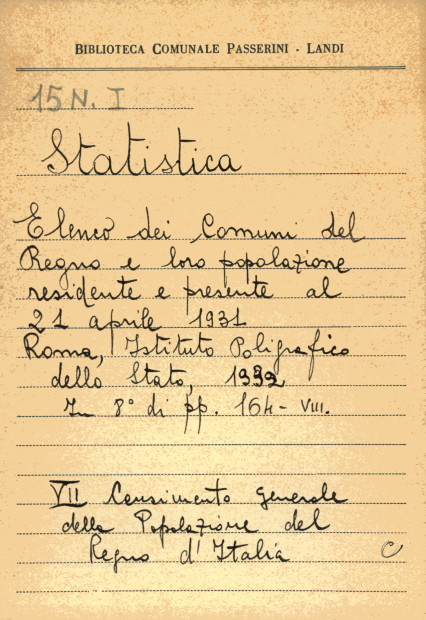 BIBLIOTECA COMUNALE PASSERINI - LANDI
15 N. I
Statistica
Elenco dei Comuni del
Regno e loro popolazione
residente e presente al
21 aprile 1931
Roma, Istituto Poligrafico
dello Stato, 1932
In 8° di pp. 164 - VIII.
VII Censimento generale
della Popolazione del
Regno d'Italia
C